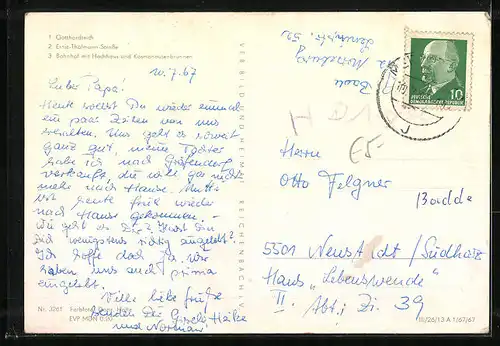 1 Gotthardteich
2 Ernst-Thälmann-Straße
3 Bahnhof mit Hochhaus und
10.7.67
Lieber Papa!
Heute sollst Du wieder einmal
ein paar Zeilen von uns
erhalten. Uns geht es soweit
ganz gut, meine Tochter
habe ich nach Gräfendorf
verkauft, die will gar nicht
mehr nach Hause. Mutti
ist heute früh wieder
nach Hause gekommen. -
Wie geht es Dir? Hast Du
Dich wenigstens richtig ausgeruht?
Ich hoffe doch ja. Wir
haben uns auch prima
Viele liebe Grüße
senden Dir Gisela Heike
und Norman
Nr. 3267
EVP MDN 0,20
VERLAG BILD UND HEIMAT REICHENBACH I. V.
Merseburg
52
10
DEUTSCHE
DEMOKRATISCHE REPUBLIK
H D1
£5-
Herrn
Otto Felgner
5501 Neustadt / Südharz
Haus "Lebenswende"
II. Abt. Zi. 39
III/26/13 A 1/67/67